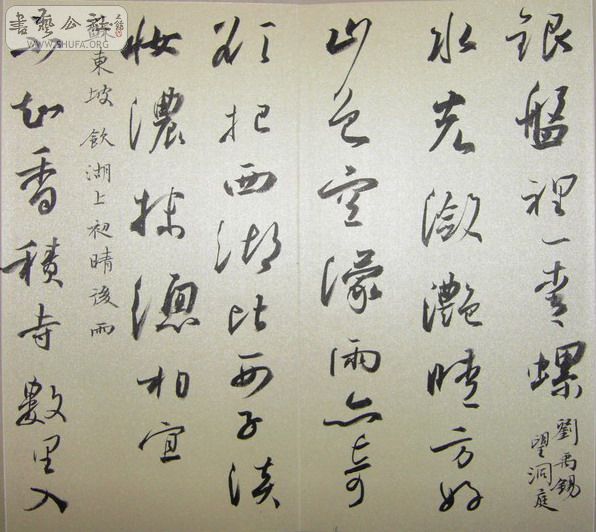 銀盤裡一青螺
劉禹錫
望洞庭
水光瀲灩晴方好
山色空濛雨亦奇
欲把西湖比西子淡
妝濃抹總相宜
蘇東坡 飲湖上初晴後雨
不知香積寺數里入
書藝公社
WWW.SHUFA.ORG